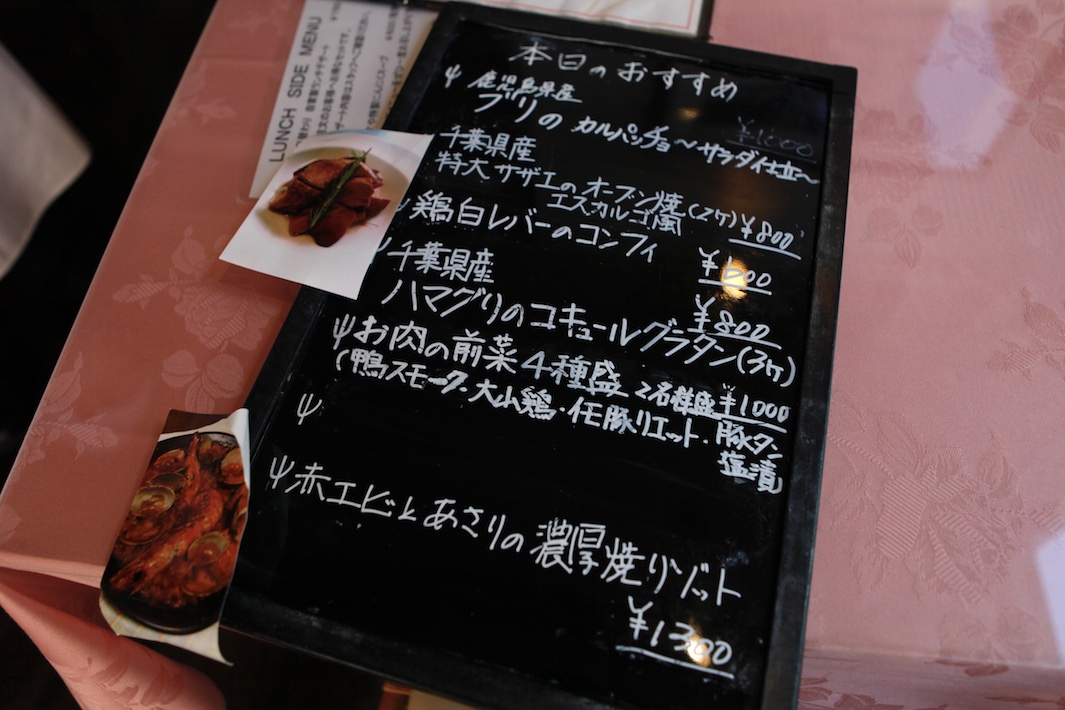 LUNCH SIDE MENU
本日のおすすめ
鹿児島県産
ブリの カルパッチョ〜サラダ仕立〜
千葉県産
特大サザエのオーブン焼(2ヶ) ¥800
エスカルゴ風
鶏白レバーのコンフィ
千葉県産
ハマグリのコキュールグラタン(3ヶ) ¥800
お肉の前菜4種盛 2名様盛 ¥1000
(鴨スモーク・大山鶏・豚リエット・豚タン
塩漬
赤エビとあさりの濃厚焼リゾット
¥1300